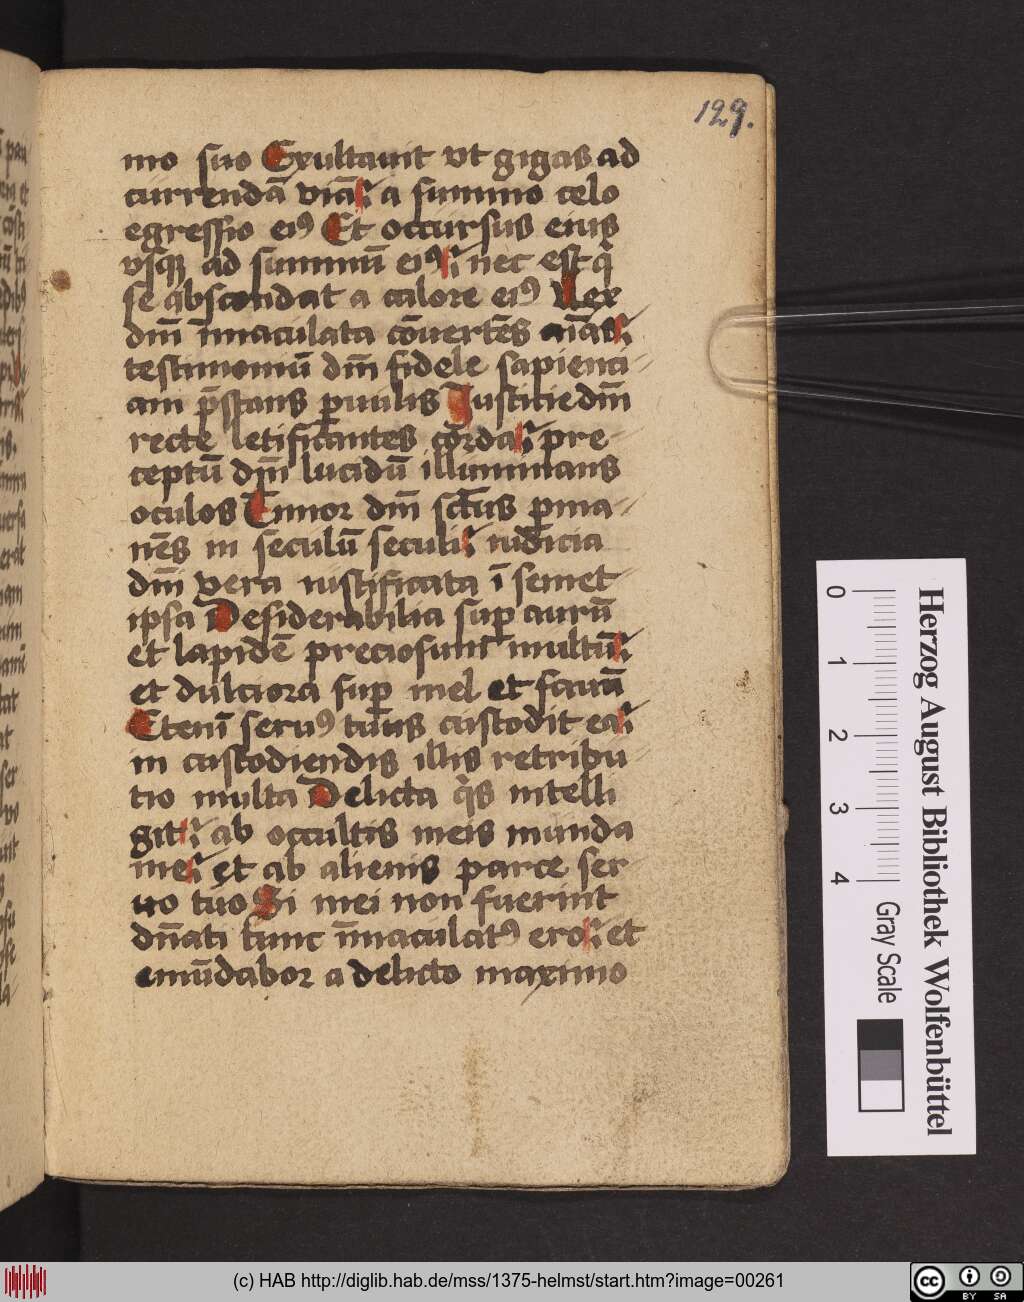 129.
mo suo Exultauit vt gigas ad
currendā viā a summo celo
egressio eiꝰ Et occursus eius
vsqꝫ ad summū eiꝰ nec est q̄
se abscondat a calore eiꝰ Lex
dn̄i īmaculata cōuertēs aīas
testimoniū dn̄i fidele sapienci
am p̄stans ꝑuulis Iusticie dn̄i
recte letificantes corda pre
ceptū dn̄i lucidū illuminans
oculos Timor dn̄i sctūs ꝑma
nēs in seculū seculi iudicia
dn̄i vera iustificata ī semet
ipsa Desiderabilia suꝑ aurū
et lapidē preciosum multū
et dulciora suꝑ mel et fauū
Etenī seruꝰ tuus custodit ea
in custodiendis illis retribu
tio multa Delicta q̄s intelli
git ab occultis meis munda
me et ab alienis parce ser
uo tuo Si mei non fuerint
dn̄ati tunc īmaculatꝰ ero et
emūdabor a delicto maximo
0 1 2 3 4
Gray Scale
Herzog August Bibliothek Wolfenbüttel
(c) HAB http://diglib.hab.de/mss/1375-helmst/start.htm?image=00261
cc BY SA